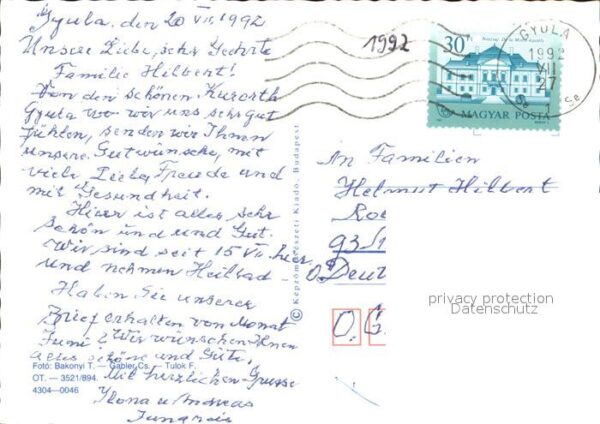 Gyula, den 20 VII, 1992
Unsere Liebe, sehr Geehrte
Familie Hilbert!
Von den schönen Kurorth
Gyula wo wir uns sehr gut
fühlen, senden wir Ihnen
unsere Gutwünsche, mit
viele Liebe, Freude und
mit Gesundheit.
Hier ist alles sehr
schön und und Gut.
Wir sind seit 15 VII hier
und nehmen Heilbad
Haben Sie unserer
Brief erhalten von Monat
Juni? Wir wünschen Ihnen
alles schöne und Gute,
Mit herzlichen Grüsse
Ilona u Andreas
Fotó: Bakonyi T. — Gabler Cs. — Tulok F.
OT. — 3521/894.
4304—0046
© Képzőművészeti Kiadó, Budapest
1992
30 Ft
MAGYAR POSTA
GYULA
1992
VII
27
An Familien
Helmut Hilbert
privacy protection
Datenschutz